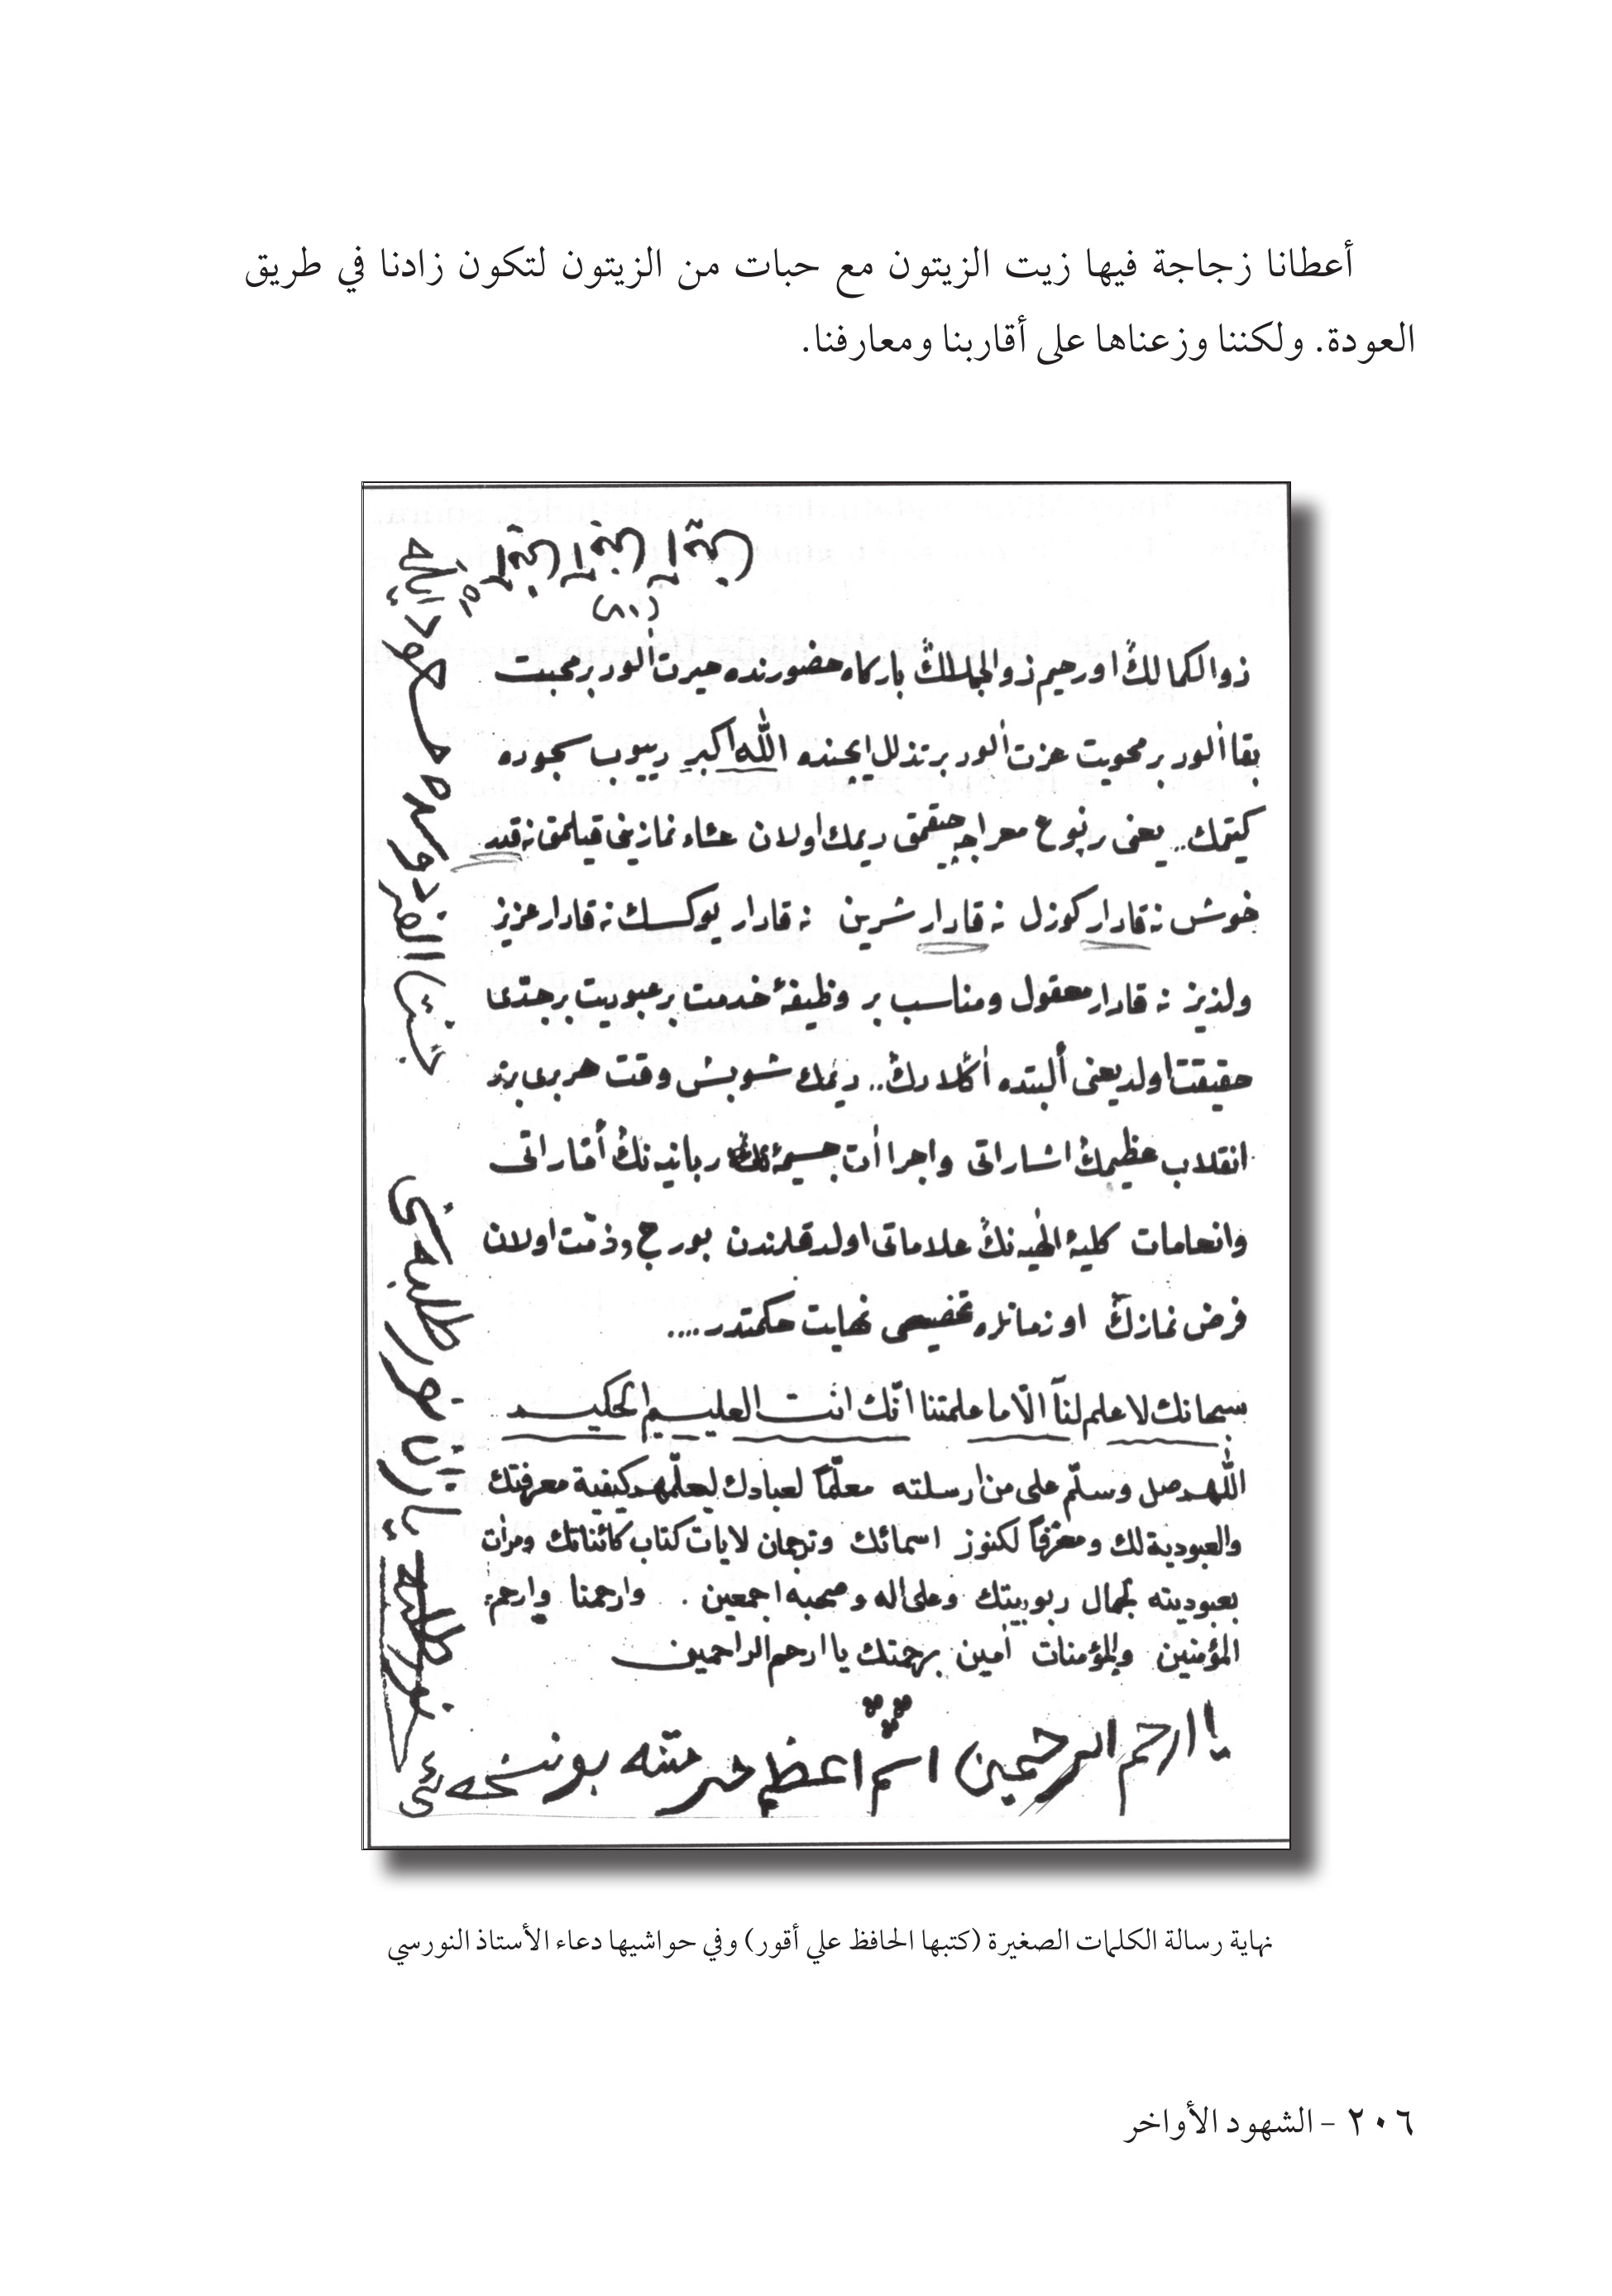 أعطانا زجاجة فيها زيت الزيتون مع حبات من الزيتون لتكون زادنا في طريق
العودة. ولكننا وزعناها على أقاربنا ومعارفنا.
آمين آمين آمين
ذو الكمالڭ او رحيم ذو الجلالڭ باركاه حضورنده حيرت آلود بر محبت
بقا آلود بر محويت عزت آلود بر تذلل ايچنده الله اكبر دييوب سجوده
كيتمك.. يعنى بر نوع معراجه چيقمق ديمك اولان عشاء نمازينى قيلمق نه قدر
خوش نه قادار كوزل نه قادار شرين نه قادار يوكسك نه قادار عزيز
ولذيز نه قادار معقول ومناسب بر وظيفۀ خدمت بر عبوديت بر جدّى
حقيقت اولديغنى ألبتده آڭلادڭ.. ديمك شو بش وقت هر برى برر
انقلاب عظيمڭ اشاراتى واجراآت جسيمۀ ربانيه نڭ أماراتى
وانعامات كليۀ الٰهيه نڭ علاماتى اولدقلرندن بورج وذمّت اولان
فرض نمازڭ او زمانلره تخصيصى نهايت حكمتدر....
سبحانك لا علم لنآ الّا ما علمتنا انّك انت العليم الحكيم
اللّهم صل وسلّم على من ارسلته معلّمًا لعبادك ليعلّمهم كيفية معرفتك
والعبودية لك ومعرّفًا لكنوز اسمائك وترجمان لايات كتاب كائناتك ومرات
بعبوديته لجمال ربوبيتك وعلى اله وصحبه اجمعين . وارحمنا وارحم
المؤمنين والمؤمنات آمين برحمتك يا ارحم الراحمين
يا ارحم الرحمين اسم اعظم حرمتنه بو نسخه يى
يازان نور طلبه سنى
جنت الفردوسده مسعود ايله
نهاية رسالة الكلمات الصغيرة (كتبها الحافظ علي أقور) وفي حواشيها دعاء الأستاذ النورسي
٢٠٦ - الشهود الأواخر